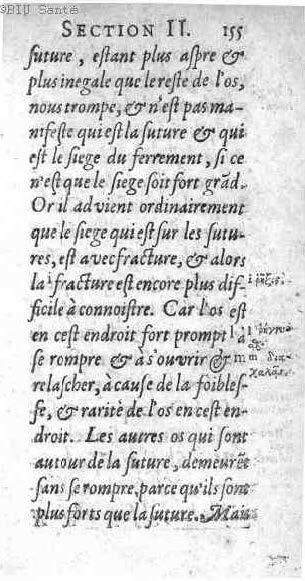 ©BIU Santé
SECTION II. 155
suture, estant plus aspre &
plus inegale que le reste de l'os,
nous trompe, & n'est pas ma-
nifeste qui est la suture & qui
est le siege du ferrement, si ce
n'est que le siege soit fort grãd.
Or il advient ordinairement
que le siege qui est sur les sutu-
res, est avec fracture, & alors
la fracture est encore plus dif-
ficile à connoistre. Car l'os est
en cest endroit fort prompt à
se rompre & à s'ouvrir &
relascher, à cause de la foibles-
se, & rarité de l'os en cest en-
droit. Les autres os qui sont
autour de la suture, demeurẽt
sans se rompre, parce qu'ils sont
plus forts que la suture. Mais